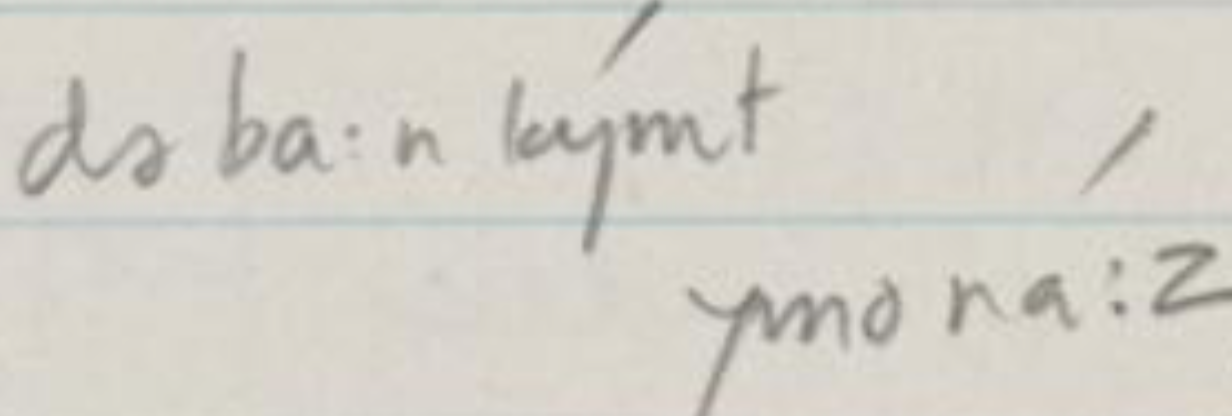 də ba:n kýmt
ymo ná:z